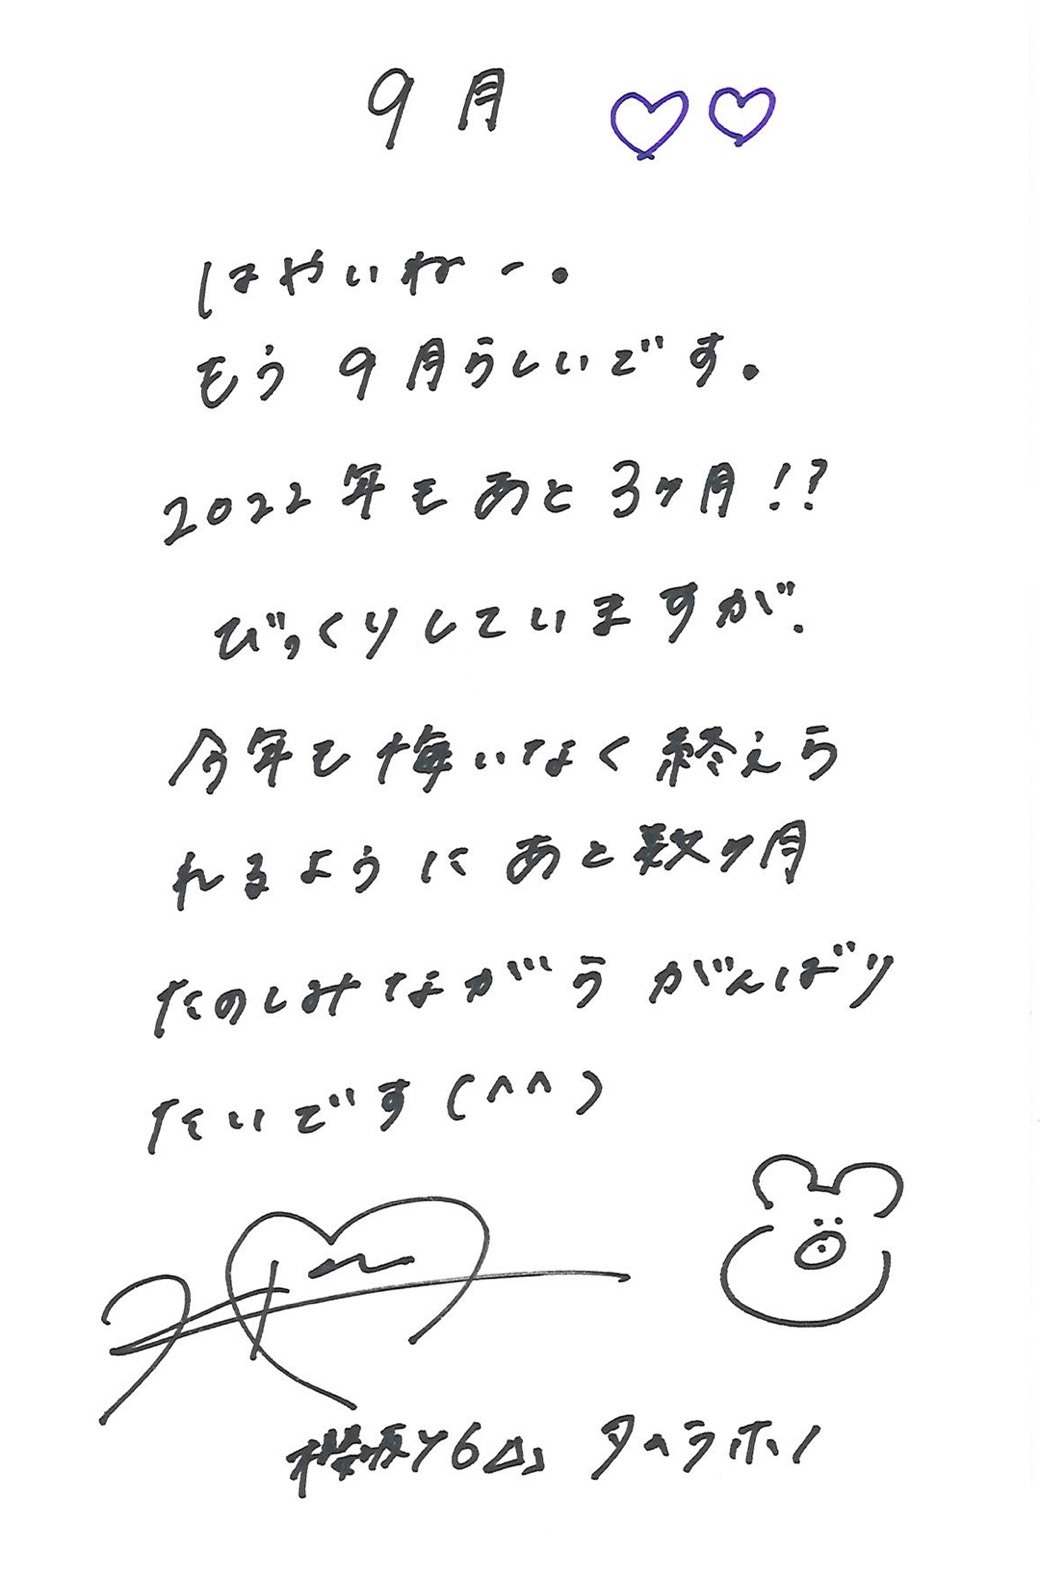 9月
はやいねー。
もう9月らしいです。
2022年もあと3ヶ月!?
びっくりしていますが、
今年も悔いなく終えら
れるようにあと数ヶ月
たのしみながら がんばり
たいです(^^)
櫻坂46 山 タムラホノ